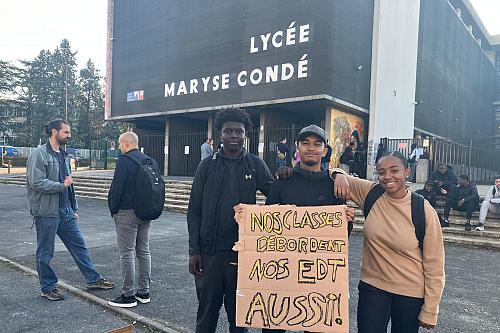 LYCÉE
MARYSE CONDÉ
NOS CLASSES
DÉBORDENT
NOS EDT
AUSSI!